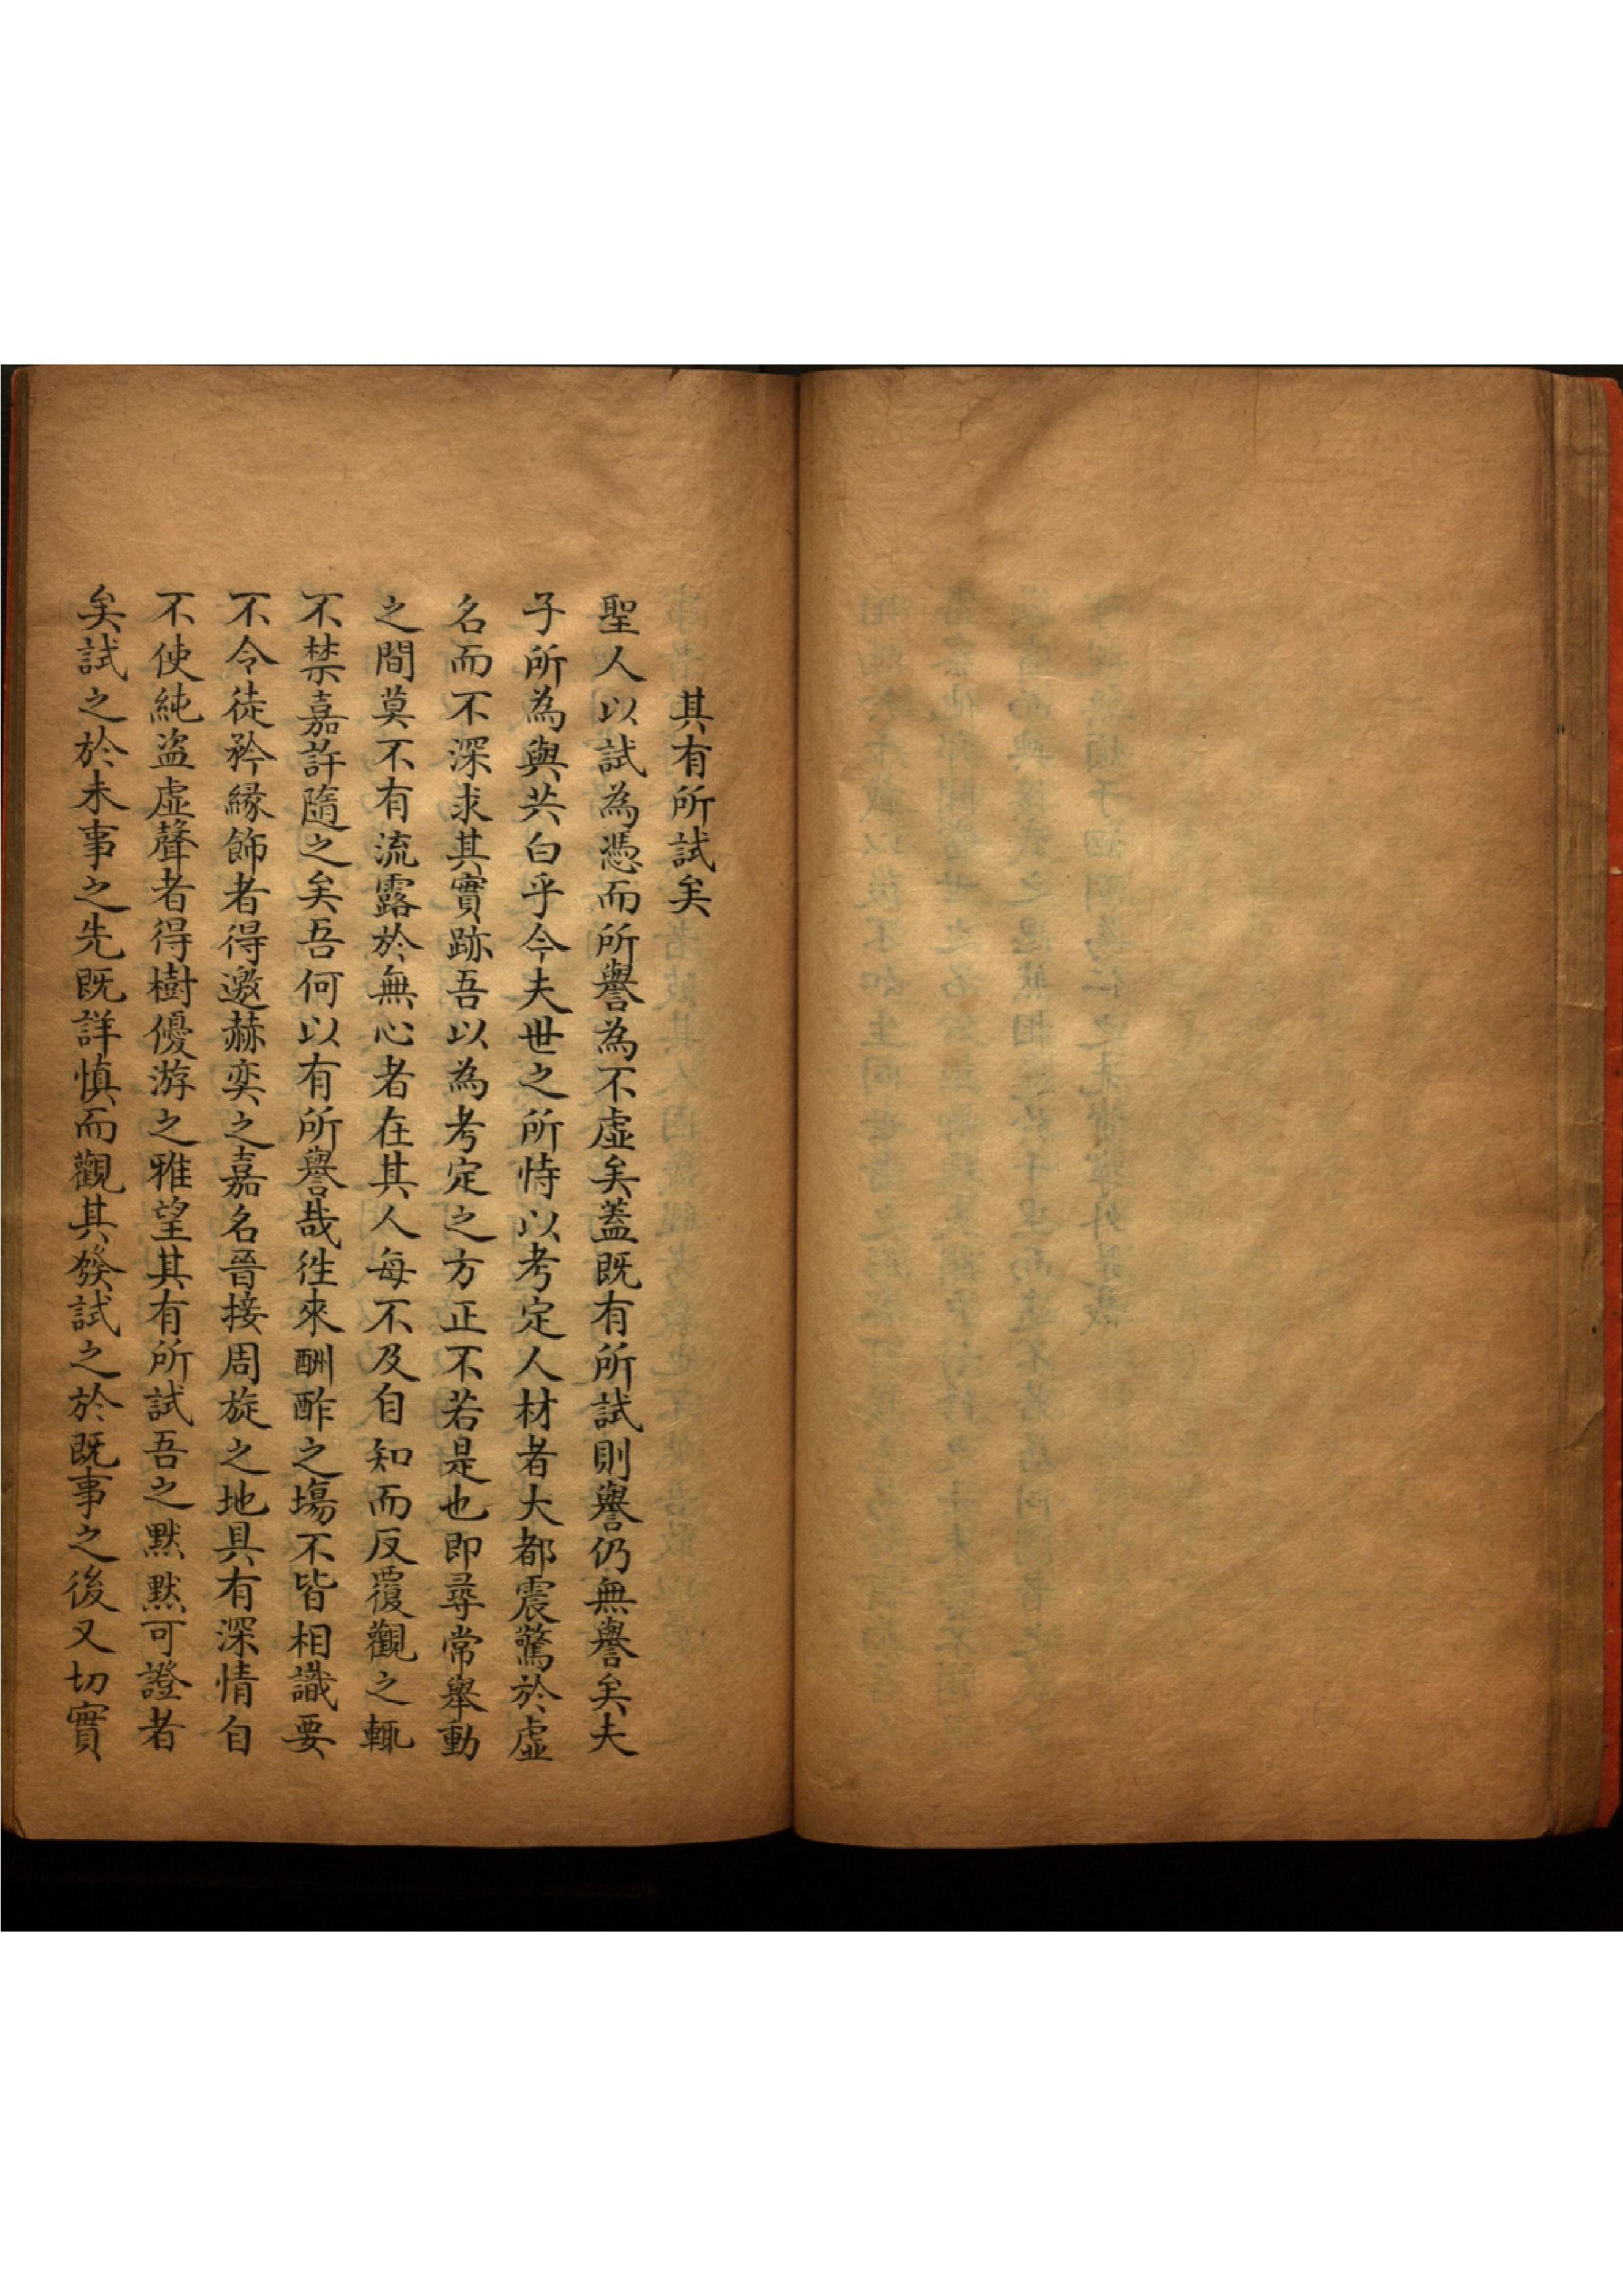 其有所試矣
聖人以試為憑而所譽為不虛矣蓋既有所試則譽仍無譽矣夫
子所為與共白乎今夫世之所恃以考定人材者大都震驚於虛
名而不深求其實跡吾以為考定之方正不若是也即尋常舉動
之間莫不有流露於無心者在其人每不及自知而反覆觀之輒
不禁嘉許隨之矣吾何以有所譽哉徃來酬酢之塲不皆相識要
不令徒矜緣飾者得邀赫奕之嘉名晉接周旋之地具有深情自
不使純盜虛聲者得樹優游之雅望其有所試吾之默默可證者
矣試之於未事之先既詳慎而觀其發試之於既事之後又切實